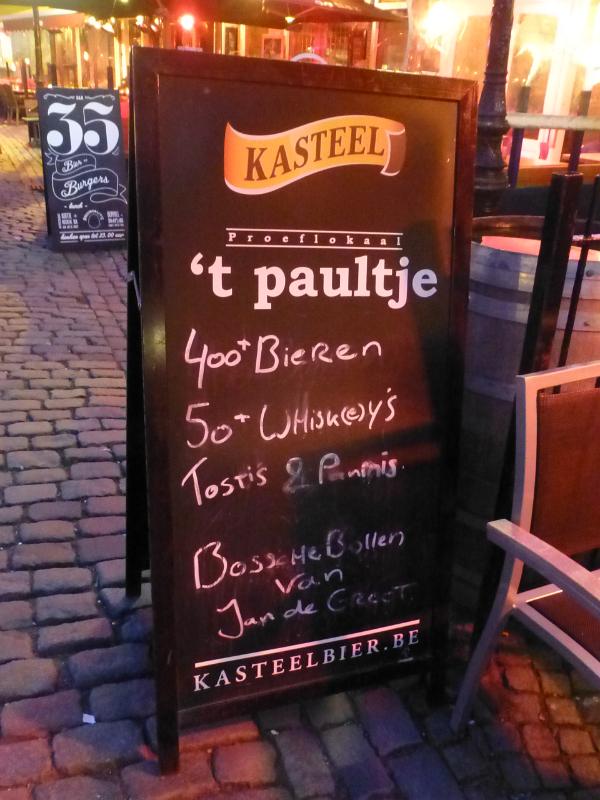 KASTEEL
Proeflokaal
't paultje
400+ Bieren
50+ Whisk(e)y's
Tosti's & Panini's
Bossche Bollen
van
Jan de Groot.
KASTEELBIER.BE
35
Bier
Burgers